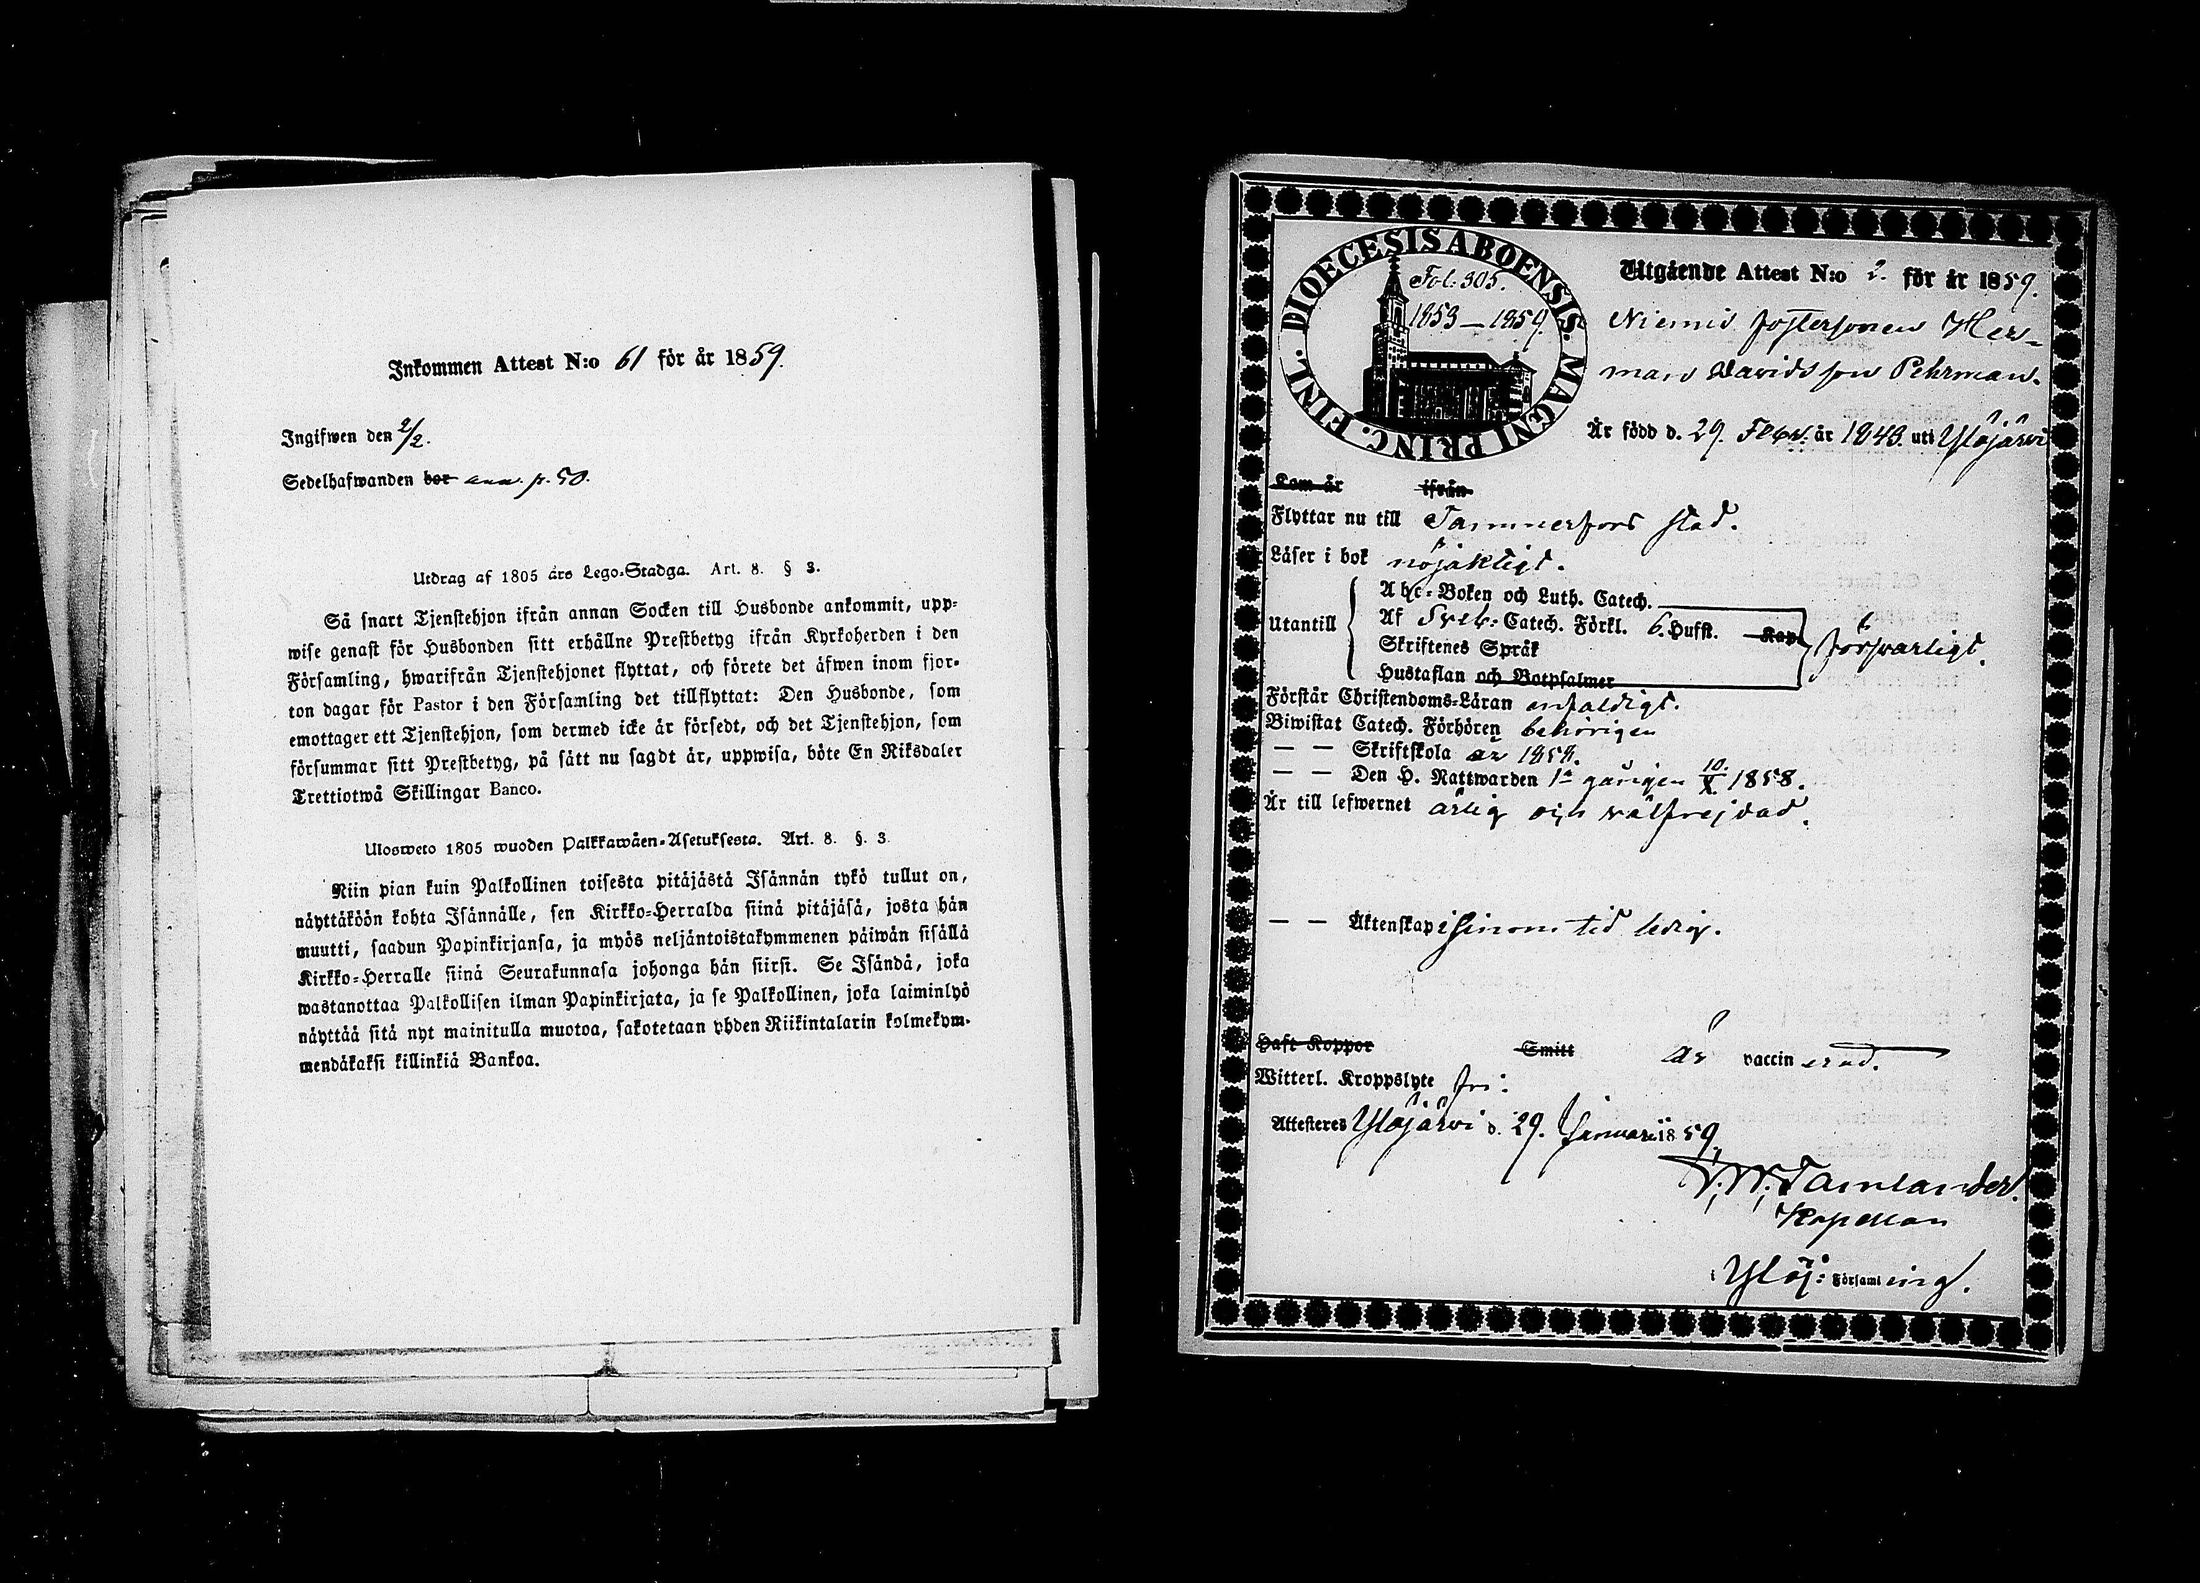 Inkommen Attest N:o 61 för år 1859.
Ingifwen den 2/2.
Sedelhafwanden bor ann. p. 50.
Utdrag af 1805 års Lego-Stadga. Art. 8. § 3.
Så snart Tjenstehjon ifrån annan Socken till Husbonde ankommit, upp-
wise genast för Husbonden sitt erhållne Prestbetyg ifrån Kyrkoherden i den
Församling, hwarifrån Tjenstehjonet flyttat, och förete det äfwen inom fjor-
ton dagar för Pastor i den Församling det tillflyttat: Den Husbonde, som
emottager ett Tjenstehjon, som dermed icke är försedt, och det Tjenstehjon, som
försummar sitt Prestbetyg, på sätt nu sagdt är, uppwisa, böte En Riksdaler
Trettiotwå Skillingar Banco.
Ulosweto 1805 wuoden Palkkawäen-Asetuksesta. Art. 8. §. 3.
Niin pian kuin Palkollinen toisesta pitäjästä Isännän tykö tullut on,
näyttäköön kohta Isännälle, sen Kirkko-Herralda siinä pitäjäsä, josta hän
muutti, saadun Papinkirjansa, ja myös neljäntoistakymmenen päiwän sisällä
Kirkko-Herralle siinä Seurakunnasa johonga hän siirsi. Se Isändä, joka
wastanottaa Palkollisen ilman Papinkirjata, ja se Palkollinen, joka laiminlyö
näyttää sitä nyt mainitulla muotoa, sakotetaan yhden Riikintalarin kolmekym-
mendäkaksi killinkiä Bankoa.
DIOECESIS ABOENSIS. MAGNI PRINC. FINL.
Fol. 305.
1853–1859.
Utgående Attest N:o 2. för år 1859.
Niemis fostersonen Her-
man Davidsson Pehrman.
Är född d. 29. Febr. år 1843. uti Ylöjärvi
Kom år ifrån
Flyttar nu till Tammerfors stad.
Läser i bok nöjaktigt.
Utantill
Abc-Boken och Luth. Catech.
Af Sveb: Catech. Förkl. 6. Hufst. Kap.
Skriftenes Språk
Hustaflan och Botpsalmer
försvarligt.
Förstår Christendoms-Läran enfaldigt.
Biwistat Catech. Förhören behörigen
— — Skriftskola år 1858.
— — Den H. Nattwarden 1a gången 10/X 1858.
Är till lefwernet ärlig och välfrejdad.
— — Äktenskap i sinom tid ledig.
Haft Koppor Smitt är vaccinerad.
Witterl. Kroppslyte fri:
Attesteres Ylöjärvi d. 29. Januari 1859.
Tamlander.
Kapellan
i Ylöj: Församling.